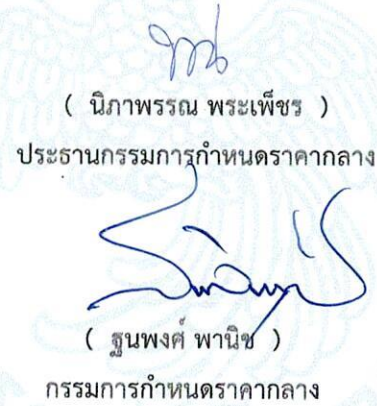 ( นิภาพรรณ พระเพ็ชร )
ประธานกรรมการกำหนดราคากลาง
( ฐนพงศ์ พานิช )
กรรมการกำหนดราคากลาง